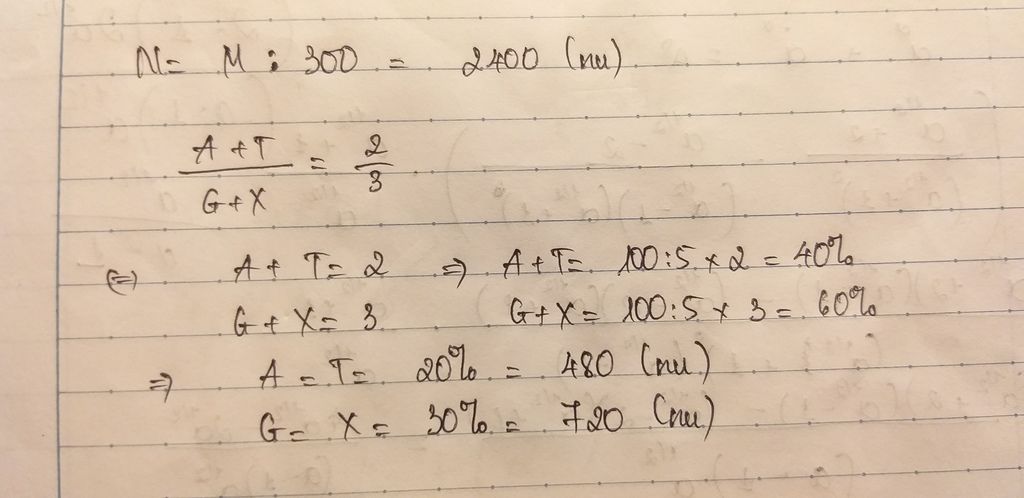 N = M : 300 = 2400 (nu)
A + T / G + X = 2 / 3
(=) A + T = 2 => A + T = 100 : 5 x 2 = 40%
G + X = 3 G + X = 100 : 5 x 3 = 60%
=> A = T = 20% = 480 (nu)
G = X = 30% = 720 (nu)